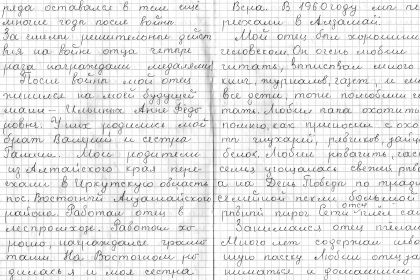 ряда оставался в теле ещё
многие годы после войны.
За смелые решительные дейст
вия на войне отца четыре
раза награждали медалями
После войны мой отец
женился на моей будущей
маме – Ильиных Анне Федо
ровне. У них родились мой
брат Валерий и сестра
Галина. Мои родители
из Алтайского края пере-
ехали в Иркутскую область
пос. Восточный Алзамайского
района Работал отец в
леспромхозе. Работал хо
рошо, награждался грамо
тами На Восточном ро
дилась я и моя сестра
Вера. В 1960 году мы пе
реехали в Алзамай.
Мой отец был хорошим
человеком. Он очень любил
читать, выписывал много
книг, журналов, газет, и мы
все дети, тоже полюбили чи
тать. Любил папа охотить
помню, как приносил с охо
ты глухарей, рябчиков, зайцев
белок. Любил рыбачить, час
семья угощалась свежей рыб
а на День Победы по трад
семейной пекли
рыбный пирог Сети отец плёл сам
Занимался отец пчелами
Много лет содержал
шую пасеку Любил отец
ниматься и домашним